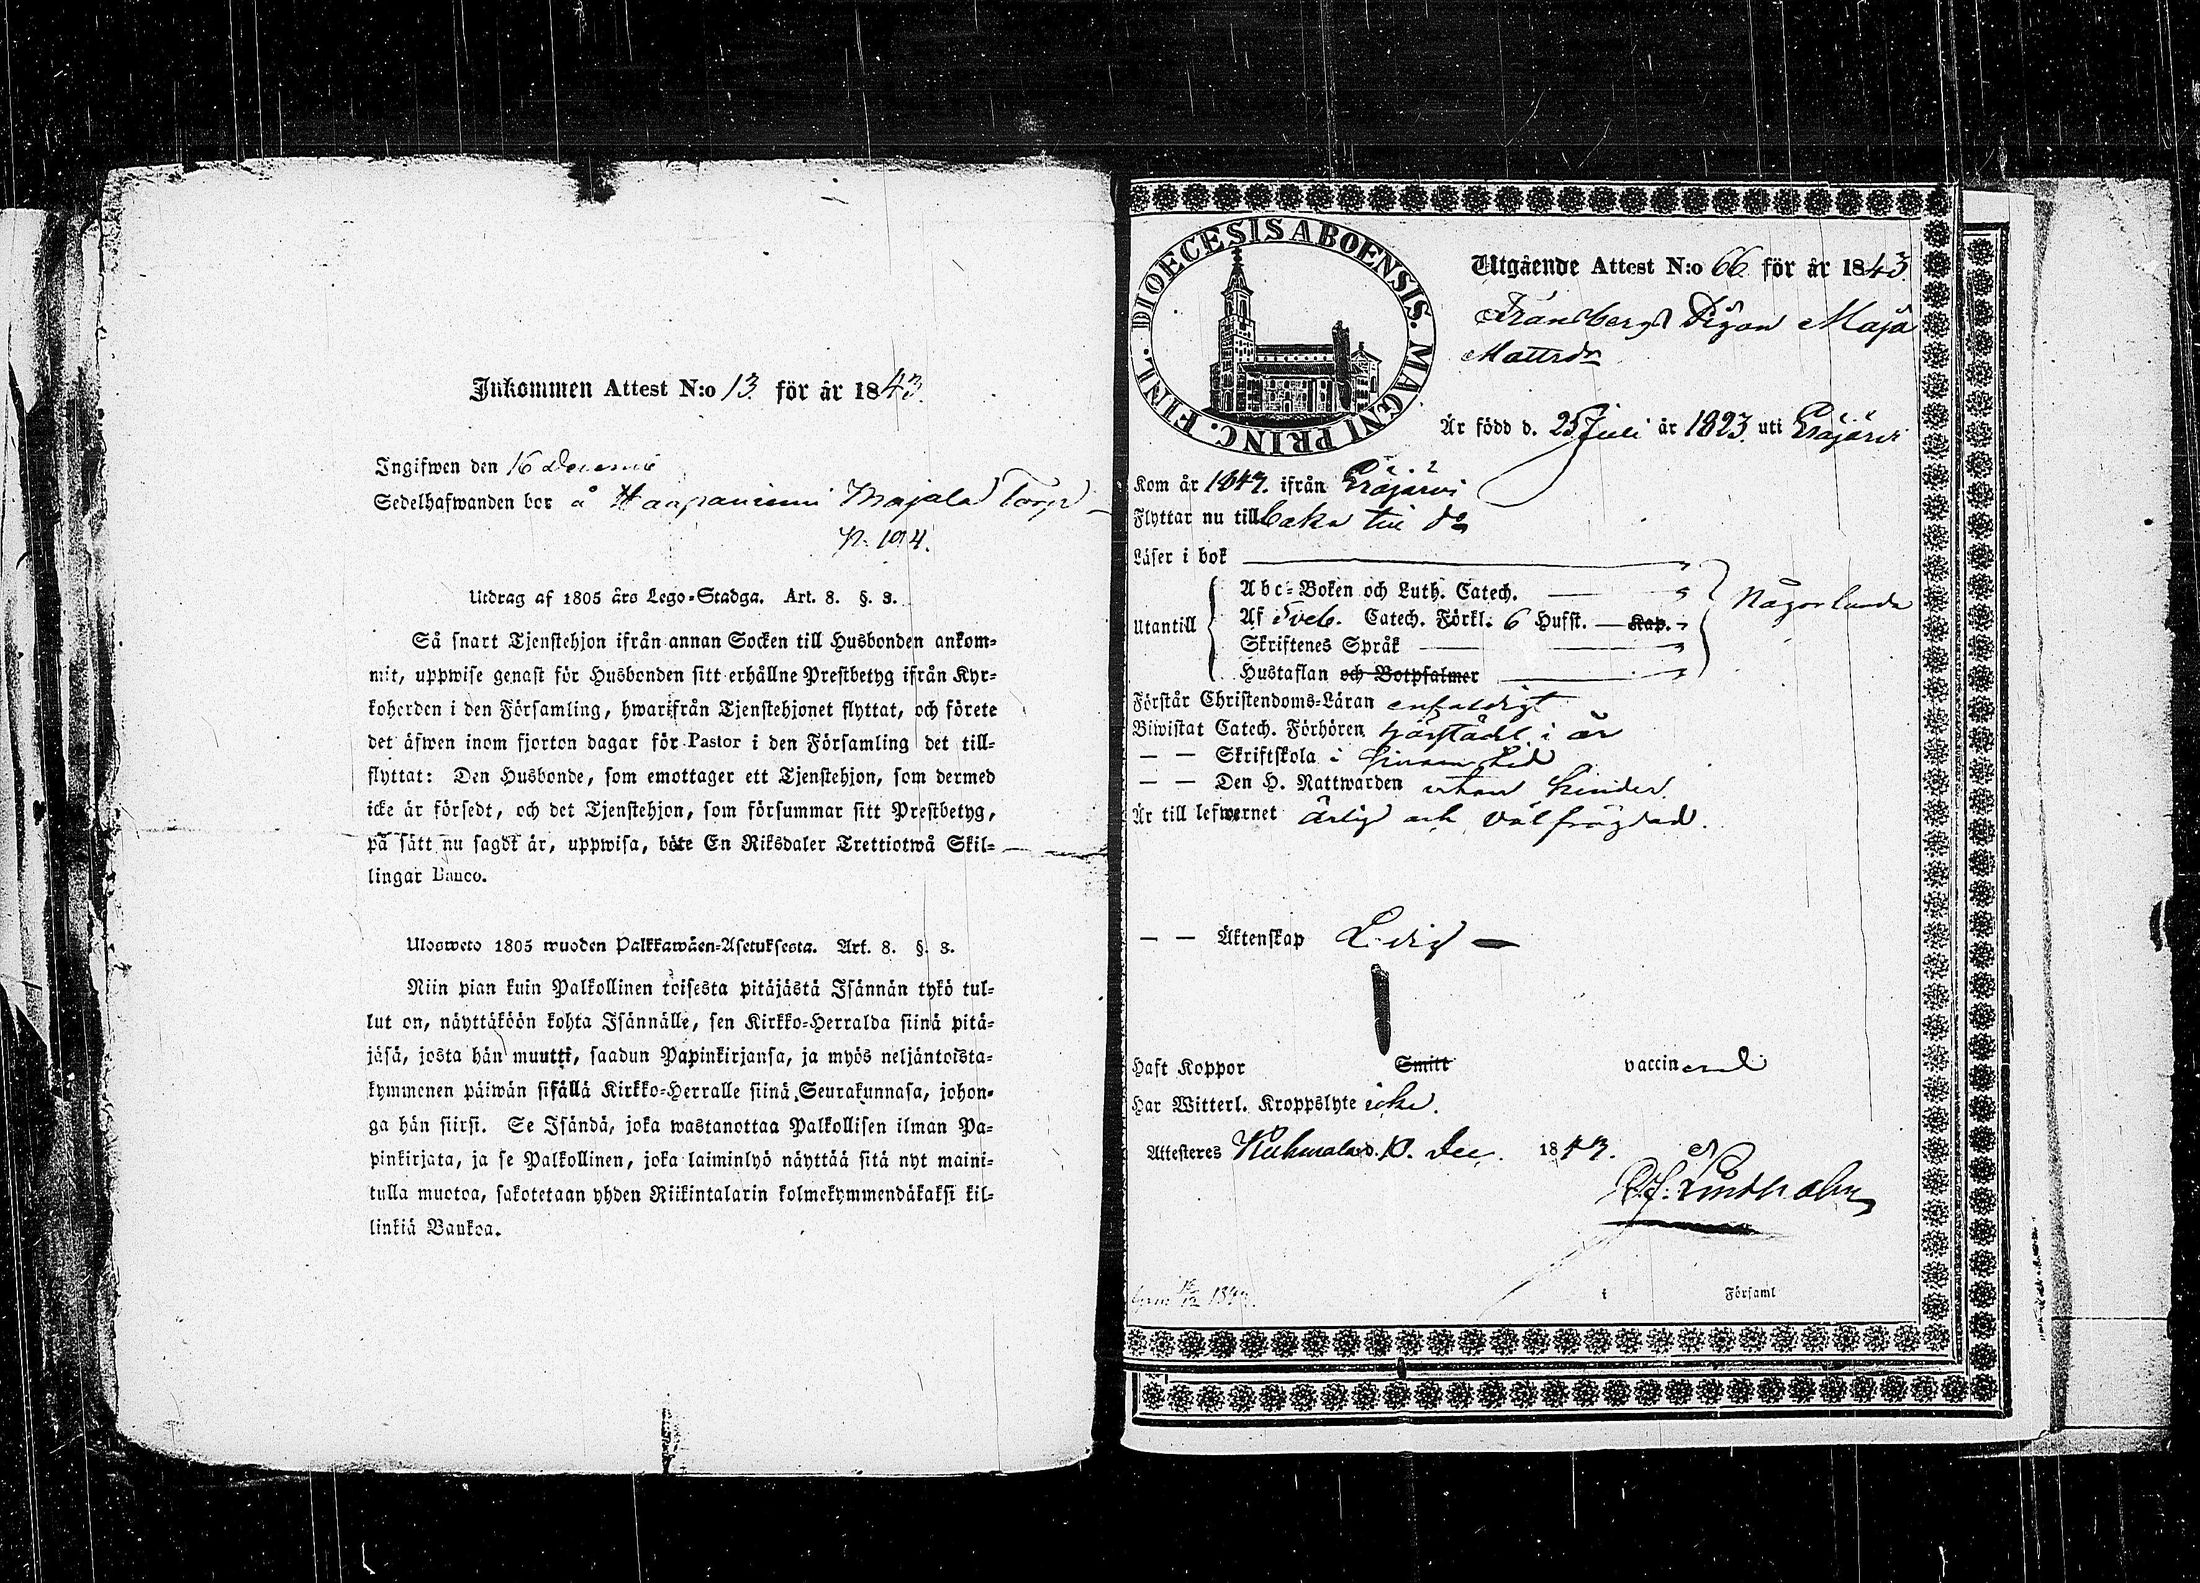 Inkommen Attest N:o 13 för år 1843.
Ingifwen den 16 Decemb
Sedelhafwanden bor å Haapaniemi Majala Torp
p. 194.
Utdrag af 1805 års Lego-Stadga. Art. 8. §. 3.
Så snart Tjenstehjon ifrån annan Socken till Husbonden ankom-
mit, uppwise genast för Husbonden sitt erhållne Prestbetyg ifrån Kyr-
koherden i den Församling, hwarifrån Tjenstehjonet flyttat, och förete
det äfwen inom fjorton dagar för Pastor i den Församling det till-
flyttat: Den Husbonde, som emottager ett Tjenstehjon, som dermed
icke är försedt, och det Tjenstehjon, som försummar sitt Prestbetyg,
på sätt nu sagdt är, uppwisa, böte En Riksdaler Trettiotwå Skil-
lingar Banco.
Ulosweto 1805 wuoden Palkkawäen-Asetuksesta. Art. 8. §. 3.
Niin pian kuin Palkollinen toisesta pitäjästä Isännän tykö tul-
lut on, näyttäköön kohta Isännälle, sen Kirkko-Herralda siinä pitä-
jäsä, josta hän muutti, saadun Papinkirjansa, ja myös neljäntoista-
kymmenen päiwän sisällä Kirkko-Herralle siinä Seurakunnasa, johon-
ga hän siirsi. Se Isändä, joka wastanottaa Palkollisen ilman Pa-
pinkirjata, ja se Palkollinen, joka laiminlyö näyttää sitä nyt maini-
tulla muotoa, sakotetaan yhden Riikintalarin kolmekymmendäkaksi kil-
linkiä Bankoa.
DIOECESIS ABOENSIS. MAGNI PRINC. FINL.
Utgående Attest N:o 66 för år 1843
Pigan Maja
Mattsdr
Är född d. 25 Juli år 1823 uti Eräjärvi
Kom år 1843. ifrån Eräjärvi
Flyttar nu tillbaka till do
Läser i bok
Abc-Boken och Luth. Catech.
Utantill Af Sveb. Catech. Förkl. 6 Hufst. Kap. Någorlunda
Skriftenes Språk
Hustaflan och Botpsalmer
Förstår Christendoms-Läran enfaldigt
Biwistat Catech. Förhören härstädes i år
— — Skriftskola i sinom tid
— — Den H. Nattwarden utan hinder.
Är till lefwernet ärlig och välfrägdad.
— — Äktenskap Ledig —
Haft Koppor Smitt vaccinerad
Har Witterl. Kroppslyte icke.
Attesteres Kuhmalax d. 10. Dec. 1843.
Lindholm
1843.
i Församl